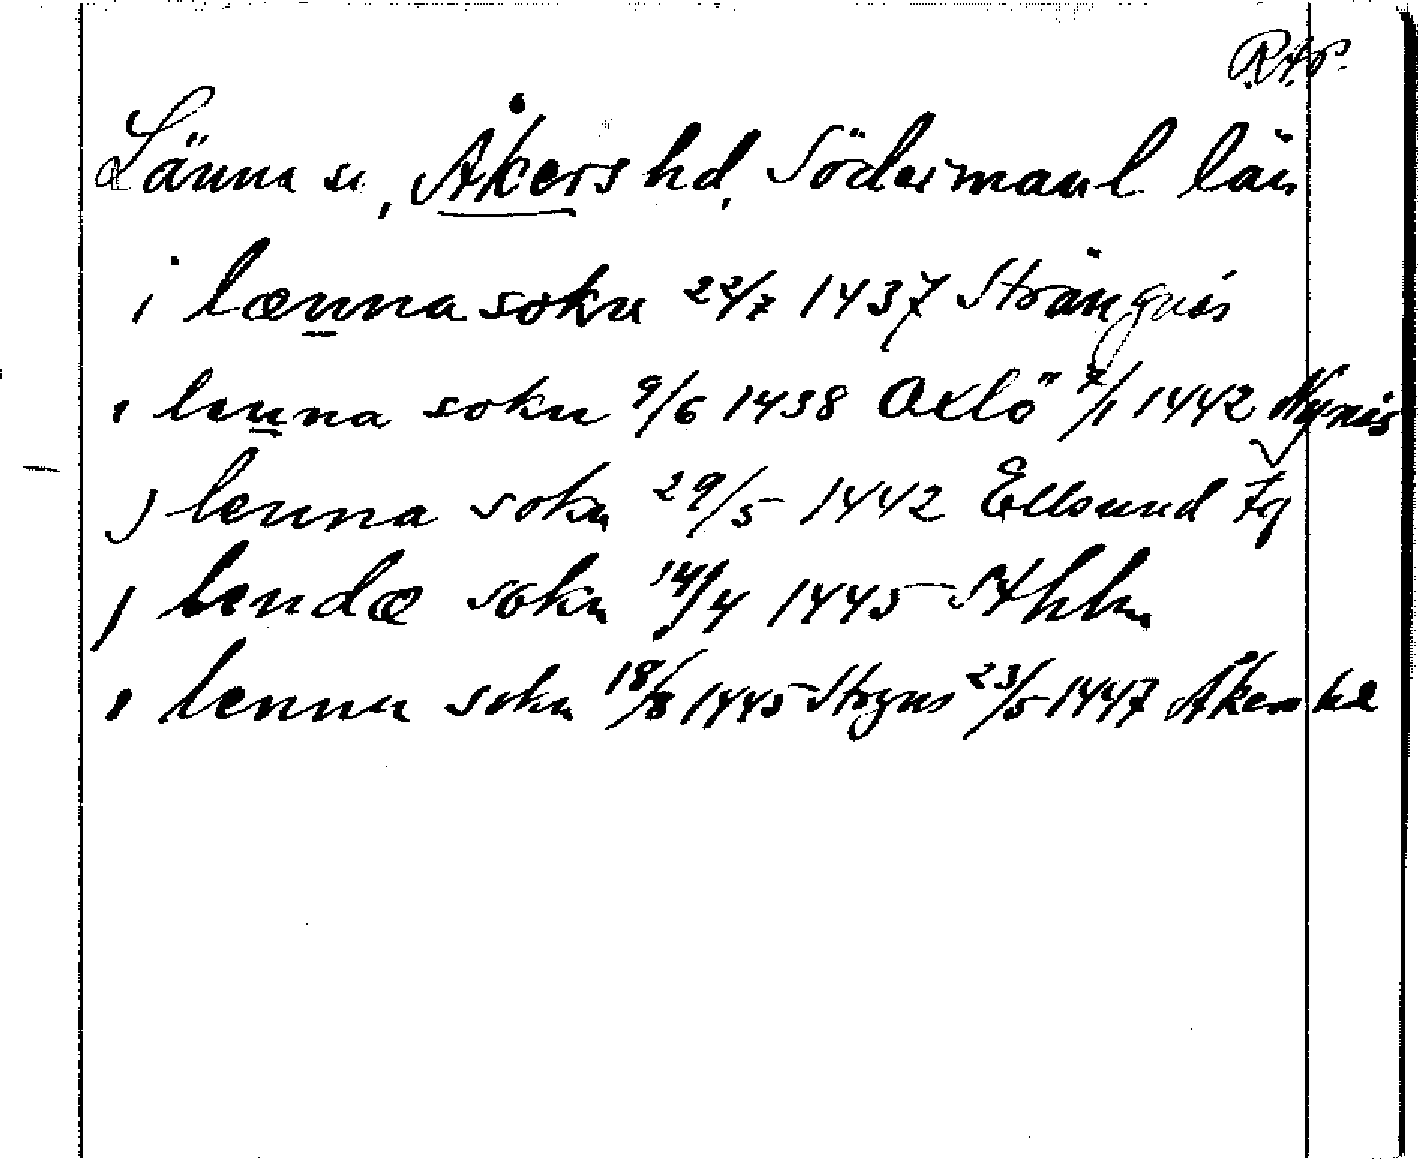 R.A.P.
Länna sn, Åkers hd, Södermanl län
i lænna sokn 22/7 1437 Strängnäs
i lenna sokn 9/6 1438 Oxlö" 7/1 1442 Nynäs
j lenna sokn 29/5 1442 Ellsund Fg
j lendæ sokn 14/4 1445 Sthlm
i lenna sokn 18/8 1445 Strgns 23/5 1447 Åkers hd